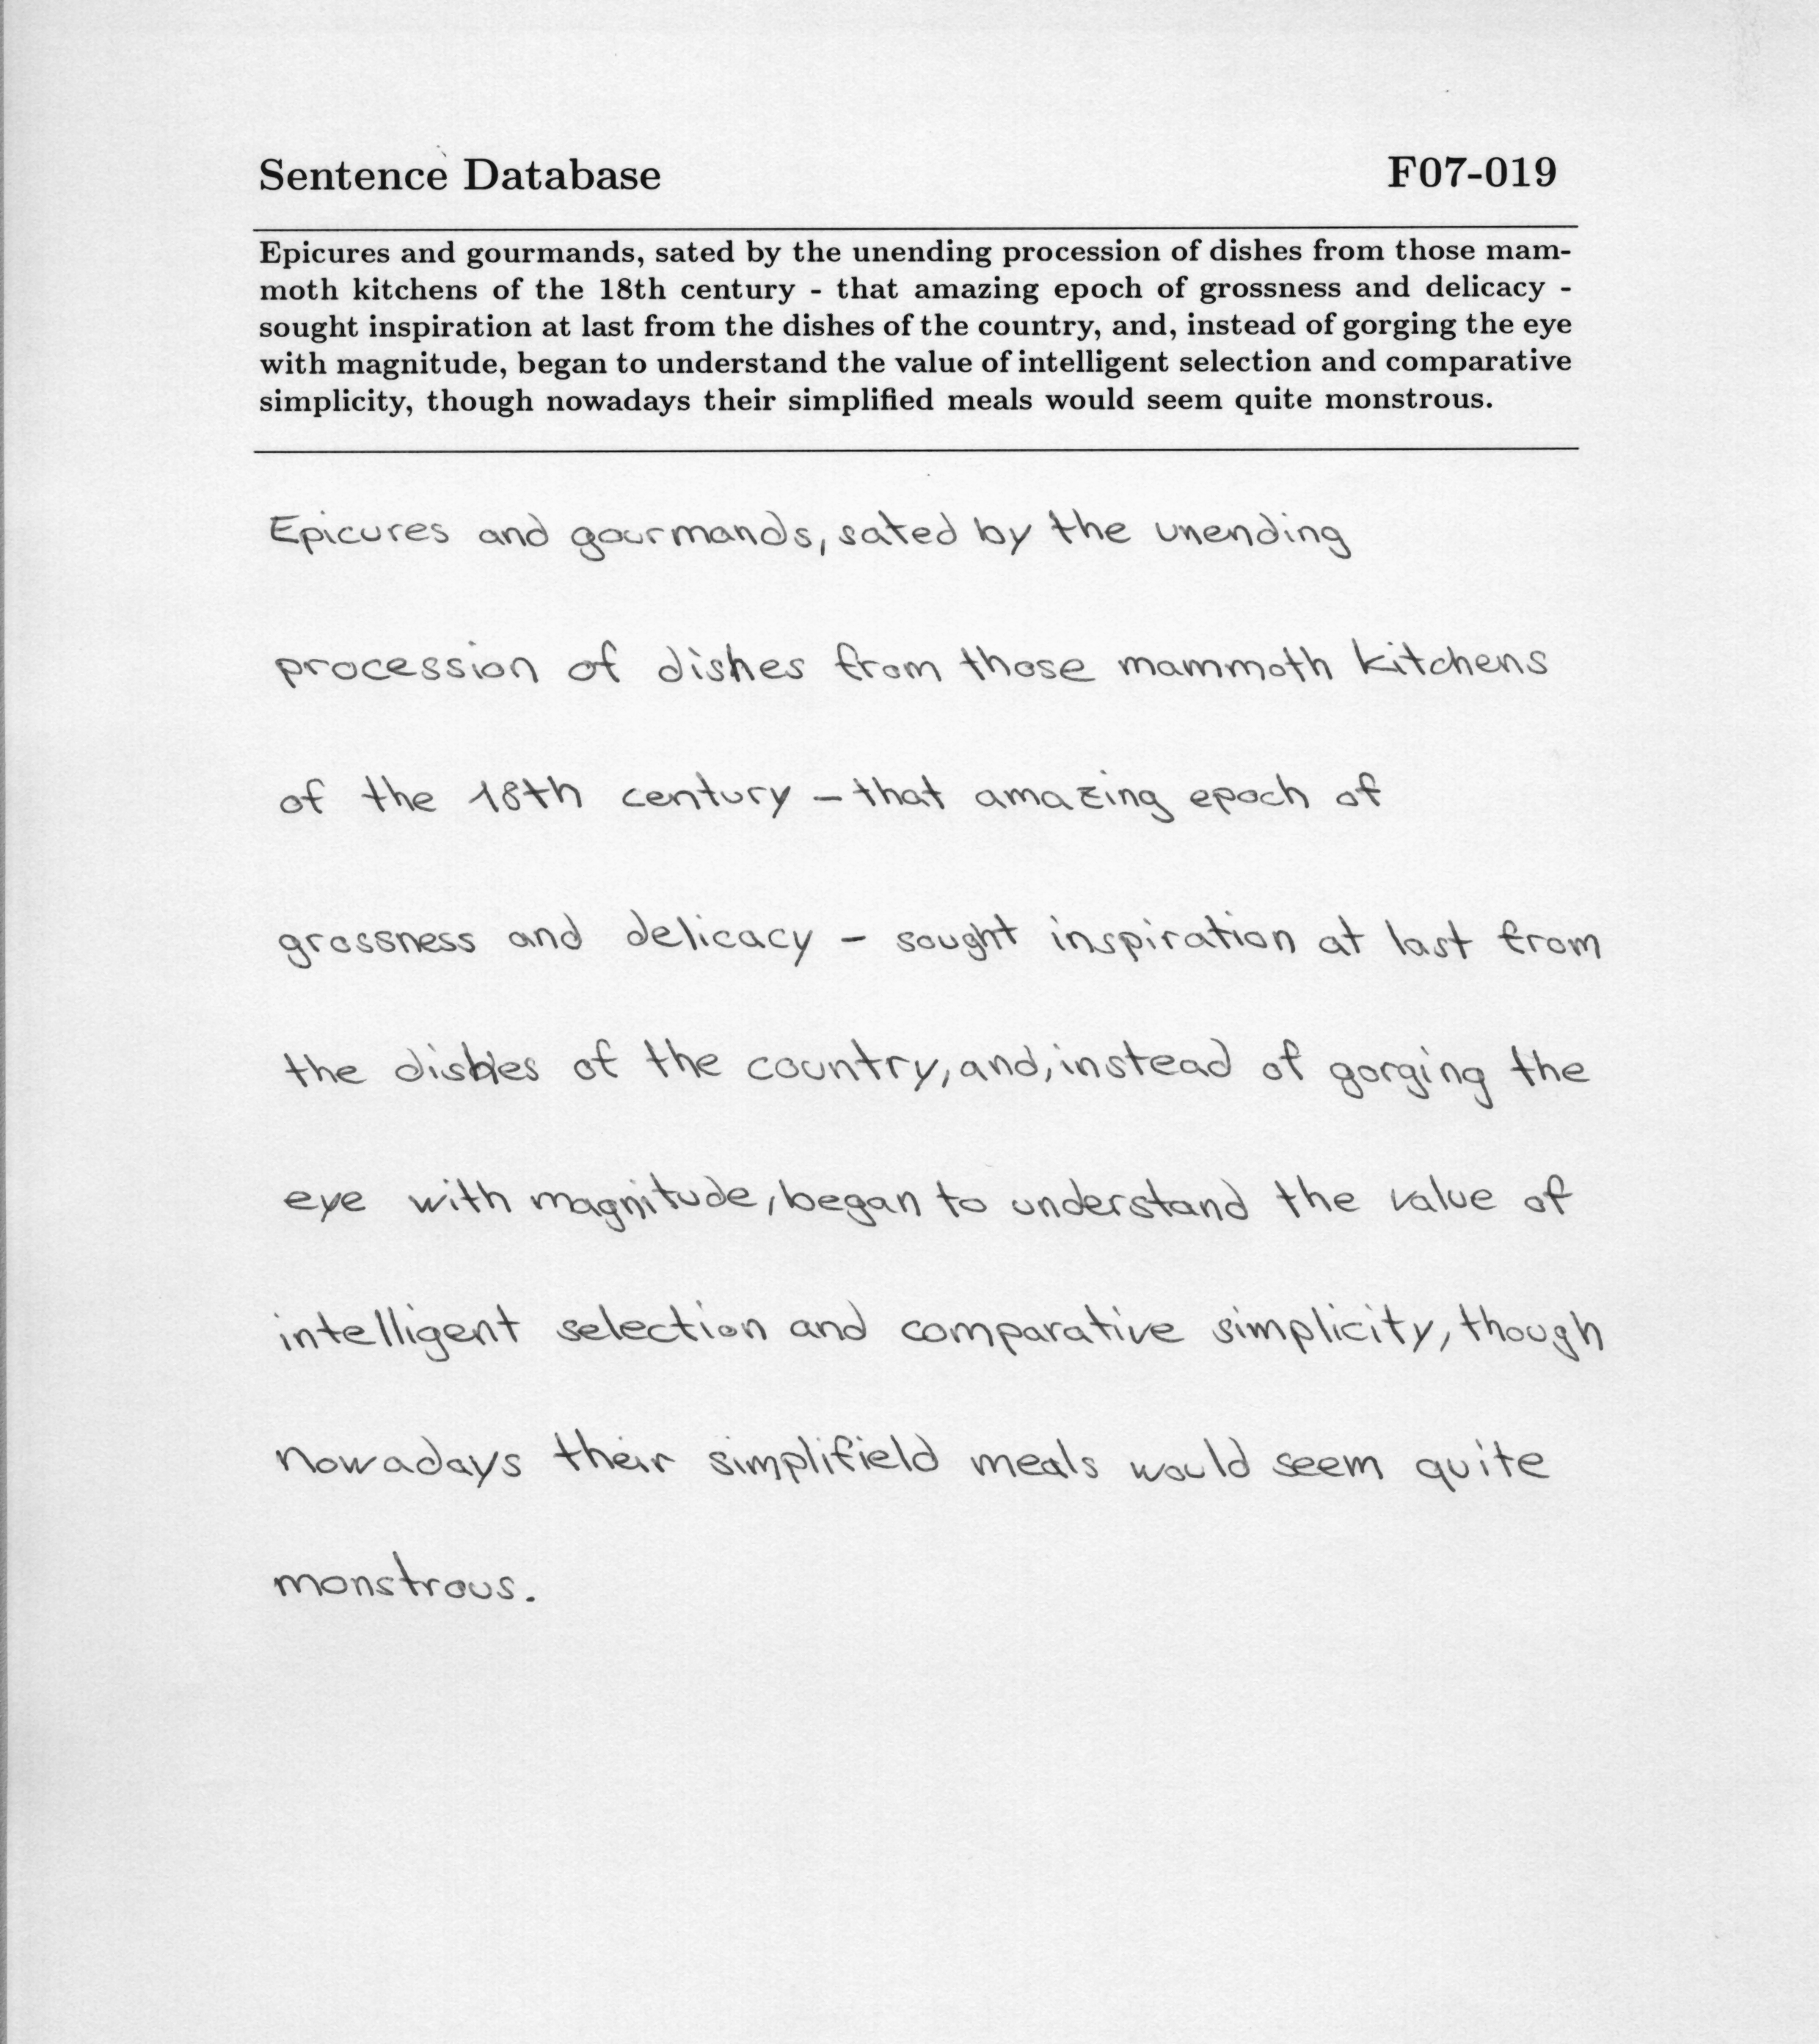 Sentence Database F07-019
Epicures and gourmands, sated by the unending procession of dishes from those mam-
moth kitchens of the 18th century - that amazing epoch of grossness and delicacy -
sought inspiration at last from the dishes of the country, and, instead of gorging the eye
with magnitude, began to understand the value of intelligent selection and comparative
simplicity, though nowadays their simplified meals would seem quite monstrous.
Epicures and gourmands, sated by the unending
procession of dishes from those mammoth kitchens
of the 18th century - that amazing epoch of
grossness and delicacy - sought inspiration at last from
the dishes of the country, and, instead of gorging the
eye with magnitude, began to understand the value of
intelligent selection and comparative simplicity, though
nowadays their simplifield meals would seem quite
monstrous.